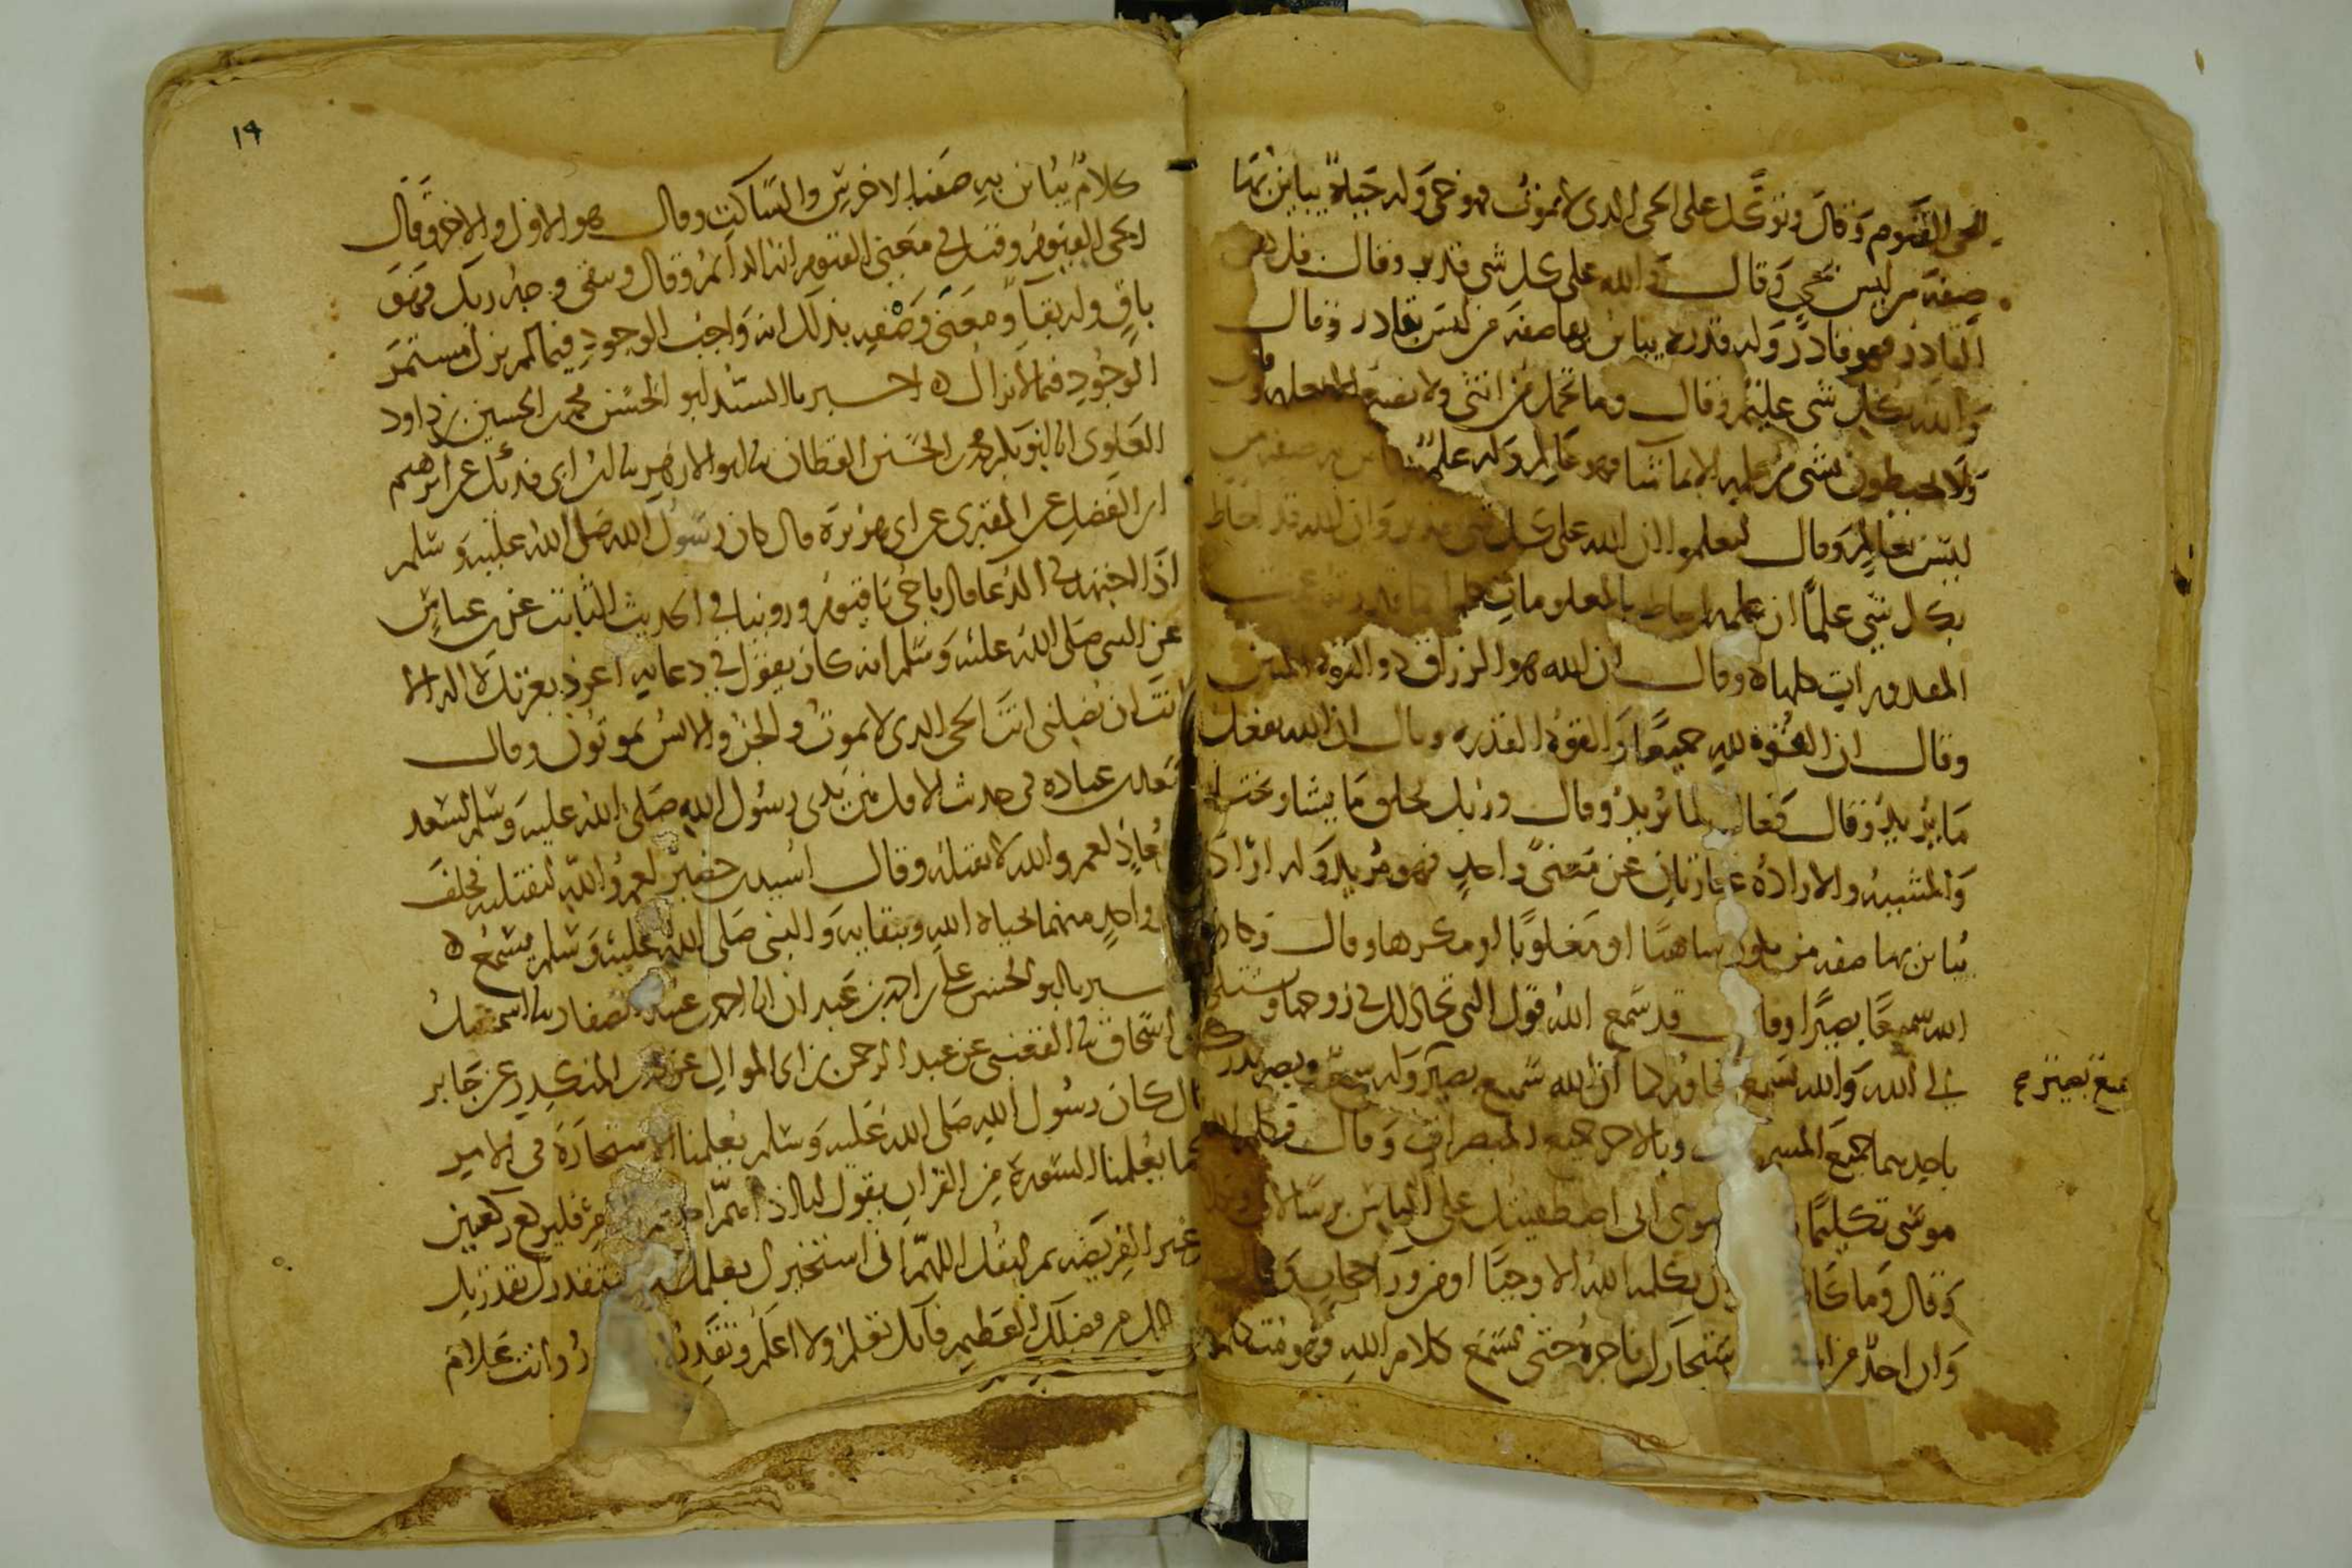 الحي القيوم وقال وتوكل على الحي الذي لا يموت فهو حي وله حياة يباين بها
صفة من ليس بحي وقال والله على كل شي قدير وقال قل هو
القادر فهو قادر وله قدرة يباين بها صفة من ليس بقادر وقال
والله بكل شي عليم وقال وما تحمل من انثى ولا تضع الا بعلمه وقال
ولا يحيطون بشي من علمه الا بما شا فهو عالم وله علم يباين به صفة من
ليس بعالم وقال لتعلموا ان الله على كل شي قدير وان الله قد احاط
بكل شي علما ان علمه احاط بالمعلومات كلها
المقدورات كلها وقال ان الله هو الرزاق ذو القوة المتين
وقال ان القوة لله جميعا والقوة القدرة وقال ان الله يفعل
ما يريد وقال فعال لما يريد وقال وربك يخلق ما يشا ويختار
والمشيية والارادة عبارتان عن معنى واحد فهو مريد وله ارادة
يباين بها صفة من يكون ساهيا او مغلوبا او مكرها وقال وكان
الله سميعا بصيرا وقال قد سمع الله قول التي تجادلك في زوجها وتشتكي
الى الله والله يسمع تحاوركما ان الله سميع بصير وله سمع وبصر يدرك
سميع بصير صح
باحدهما جميع المسموعات وبالاخر جميع المبصرات وقال وكلم الله
موسى تكليما موسى اني اصطفيتك على الناس برسالاتي
وقال وما كان ان يكلمه الله الا وحيا او من ورا حجاب
وان احد من استجارك فاجره حتى يسمع كلام الله فهو متكلم
١٩
كلام يباين به صفة الاخرس والساكت وقال هو الاول والاخر وقال
الحي القيوم وقيل في معنى القيوم انه الدائم وقال ويبقى وجه ربك فهو
باق وله بقآ ومعنى وصفه بذلك انه واجب الوجود فيما لم يزل مستمر
الوجود فيما لا يزال ه اخبرنا السيد ابو الحسن محمد بن الحسين بن داود
العلوي انا ابو بكر محمد بن الحسين القطان نا ابو الازهر نا ابن ابي فديك عن ابرهيم
ابن الفضل عن المقبري عن ابي هريرة قال كان رسول الله صلى الله عليه وسلم
اذا اجتهد في الدعا قال يا حي يا قيوم وروينا في الحديث الثابت عن بن عباس
عن النبي صلى الله عليه وسلم انه كان يقول في دعايه اعوذ بعزتك لا اله الا
انت ان تضلني انت الحي الذي لا يموت والجن والانس يموتون وقال
سعد بن عباده في حديث الافك بين يدي رسول الله صلى الله عليه وسلم لسعد
بن معاذ لعمر والله لا تقتله وقال اسيد بن حضير لعمر والله لنقتلنه فحلف
كل واحد منهما بحياة الله وببقايه والنبي صلى الله عليه وسلم يسمع ه
اخبرنا ابو الحسن علي بن احمد بن عبدان انا احمد بن عبيد الصفار نا اسمعيل
بن اسحاق نا القعنبي عن عبد الرحمن بن ابي الموالي عن محمد بن المنكدر عن جابر
قال كان رسول الله صلى الله عليه وسلم يعلمنا الاستخارة في الامر
كما يعلمنا السورة من القران يقول لنا اذا هم احدكم بالامر فليركع ركعتين
غير الفريضه ثم ليقل اللهم اني استخيرك بعلمك واستقدرك بقدرتك
واسالك من فضلك العظيم فانك تعلم ولا اعلم وتقدر ولا اقدر وانت علام